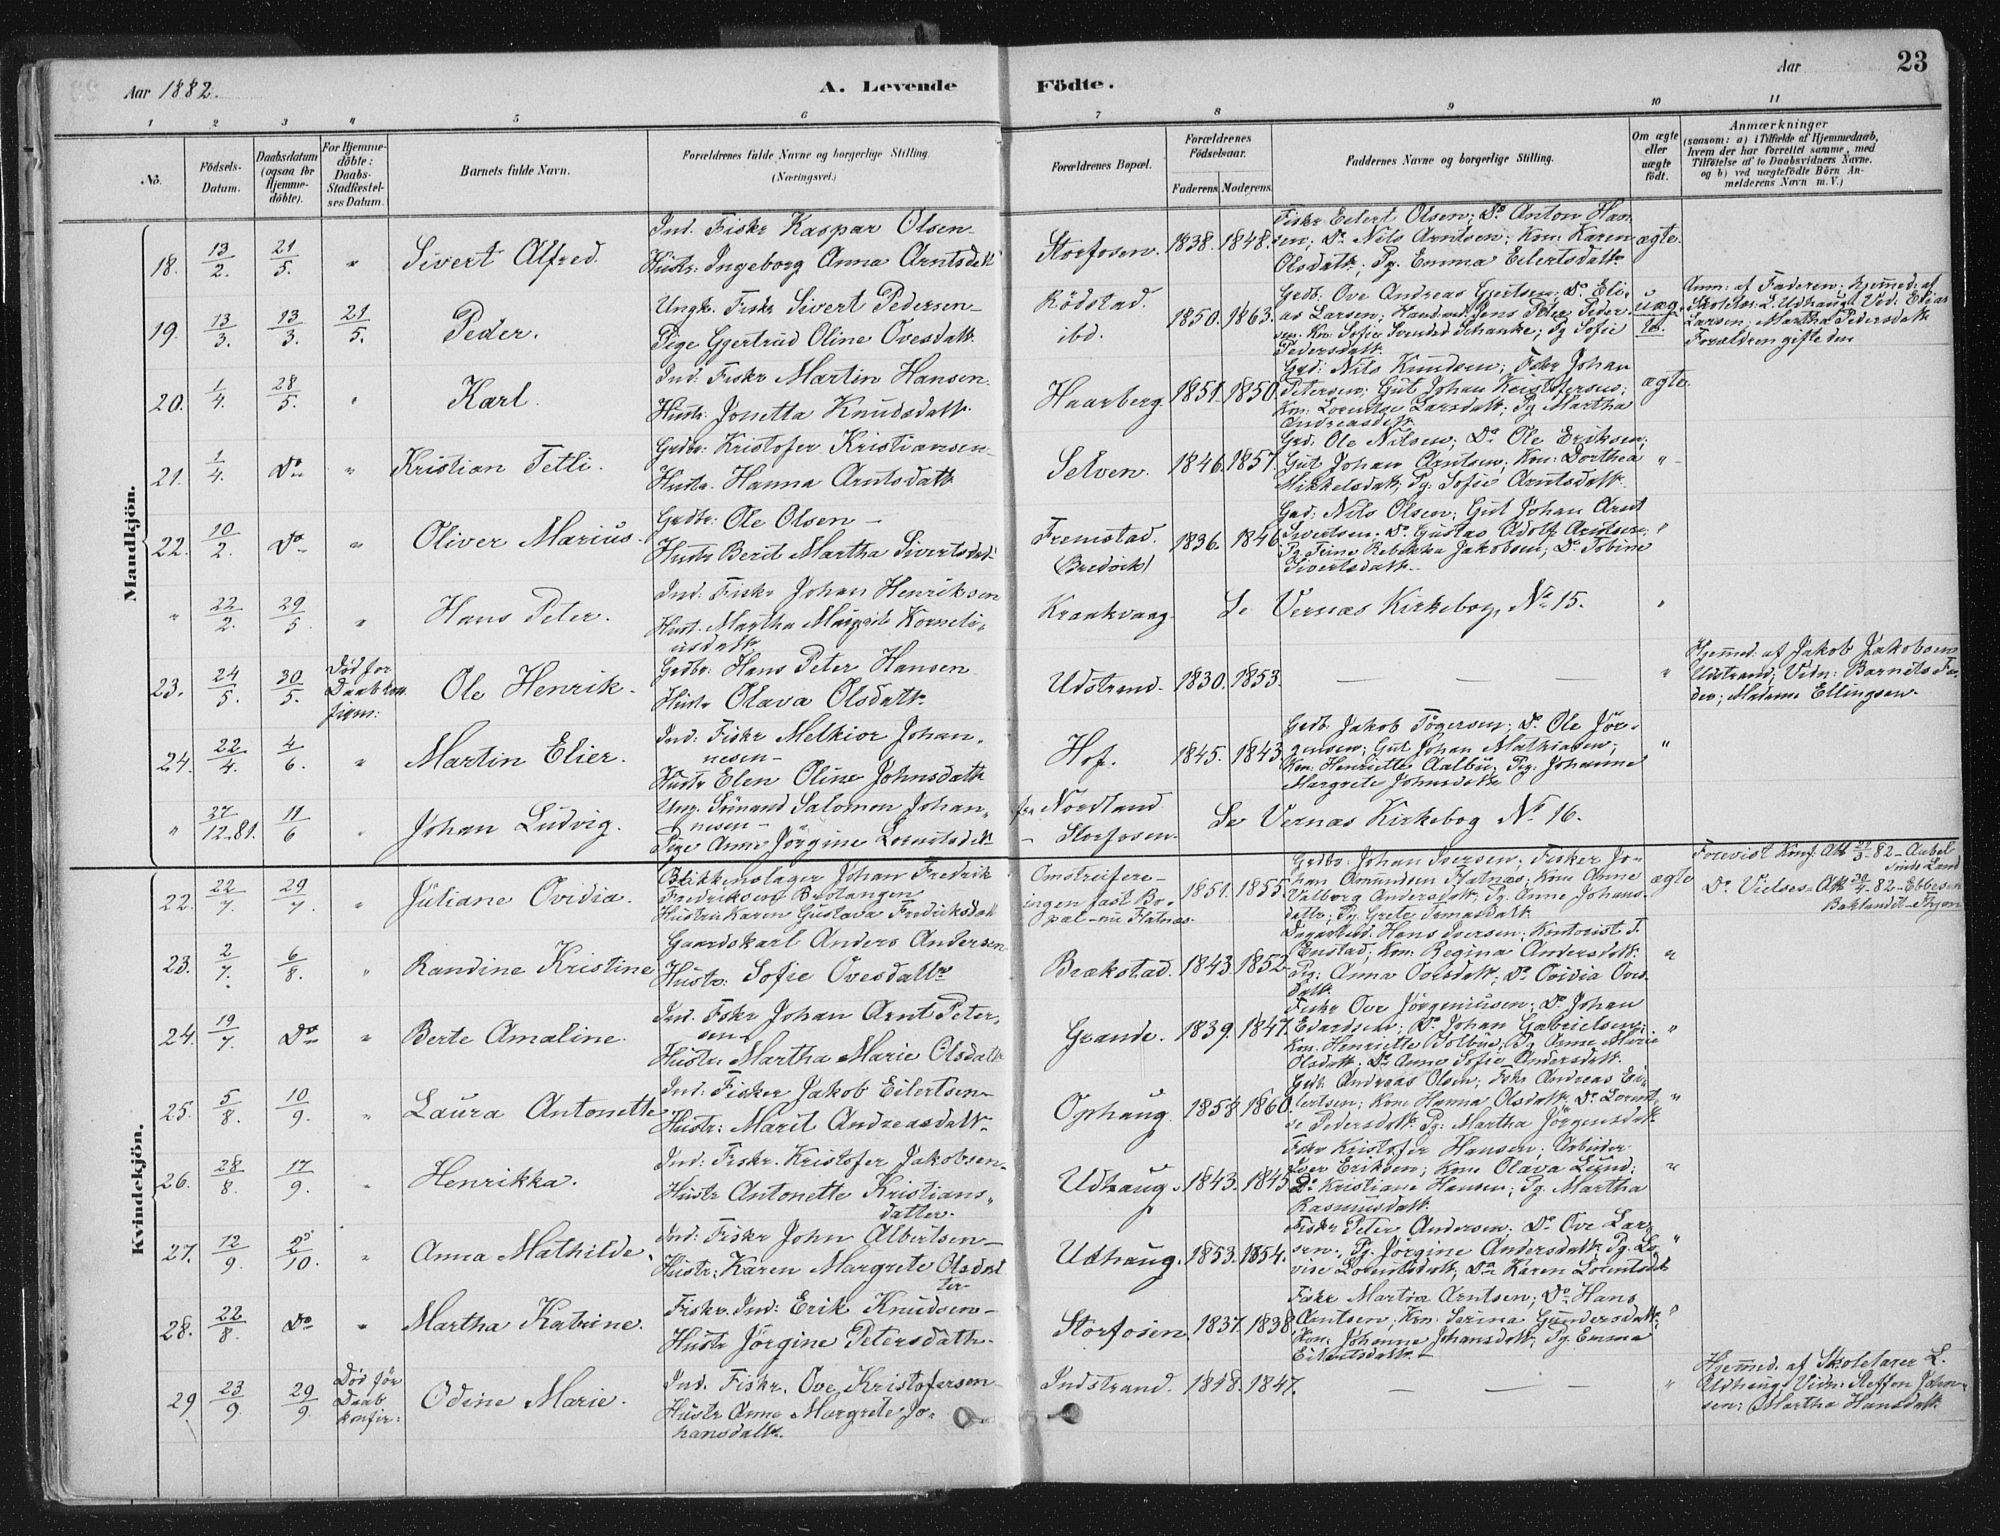 Aar 1882.
A. Levende
Födte.
Aar
23
1 2 3 4 5 6 7 8 9 10 11
No.
Födsels-Datum.
Daabsdatum (ogsaa for Hjemme-döbte).
For Hjemme-döbte: Daabs-Stadfestel-ses Datum.
Barnets fulde Navn.
Forældrenes fulde Navne og borgerlige Stilling. (Næringsvei.)
Forældrenes Bopæl.
Forældrenes Födselsaar.
Faderens. Moderens.
Faddernes Navne og borgerlige Stilling.
Om ægte eller uægte födt.
Anmærkninger
(saasom: a) i Tilfælde af Hjemmedaab, hvem der har forrettet samme, med Tilföielse af to Daabsvidners Navne. og b) ved uægtefödte Börn An-melderens Navn m. V.)
Mandkjön.
18. 13/2. 21/5. " Sivert Alfred.
Ind. Fiskr Kaspar Olsen
Hustr: Ingeborg Anna Arntsdatt
Storfosen. 1838. 1848.
Fiskr Eilert Olsen; Do Anton Han
sen; Do Nils Arntsen; Kon: Karen
Olsdatt; Pg. Emma Eilertsdattr
ægte.
19. 13/3. 13/3. 21/5. Peder.
Ungk. Fiskr Sivert Pedersen
Pige Gjertrud Oline Ovesdatt.
Rödstad. ibd. 1850. 1863.
Grdb: Ove Andreas Gjertsen; Do Eli-
as Larsen; Handsml Jens Peter Peder
sen. Kn: Sofie Schanke; Pg Sofie
Pedersdatt.
uægte.
Anm: af Faderen; hjemmed. af
Skolelær. L. Udhaug. Vid: Elias
Larsen, Martha Pedersdatt
Forældren gifte
20. 1/4. 28/5. " Karl.
Ind. Fiskr Martin Hansen.
Hustr: Jonetta Knudsdatt.
Haarberg. 1851. 1850.
Grd: Nils Knudsen; Fiskr Johan
Petersen; Gut Johan Kristofersen;
Kn: Lorentse Larsdatt; Pg Martha
Andreasdtr
ægte.
21. 1/4. Do " Kristian Tetli.
Grdbr: Kristofer Kristiansen
Hustr. Hanna Arntsdatt
Selven. 1846. 1857.
Grd: Ole Nilsen; Do Ole Eriksen;
Gut Johan Arntsen; Kon: Dorthea
Mikkelsdatt; Pg: Sofie Arntsdatt.
"
22. 10/2. Do " Oliver Marius.
Grdbr: Ole Olsen
Hustr Berit Martha Sivertsdat
Fremstad. (Bredvik) 1836. 1846
Grd: Nils Olsen; Gut Johan Arnt
Sivertsen. Do Gustav Adolf Arntsen;
Pg Trine Rebekka Jakobsen; Do Tobine
Sivertsdatt.
"
" 22/2. 29/5. " Hans Peter.
Ind: Fiskr Johan Henriksen
Hust. Martha Margret Korneli-
usdatt.
Kraakvaag. Se Vernæs Kirkebog, No 15. "
23. 24/5. 30/5. Död för Daab kon firm: Ole Henrik.
Grdbr: Hans Peter Hansen
Hustr Olava Olsdattr
Udstrand. 1830. 1853. "
Hjemmed. af Jakob Jakobsen
Udstrand, Vidn: Barnets Fa-
der; Madame Ellingsen.
24. 22/4. 4/6. " Martin Elier.
Ind: Fiskr Melkior Johan-
nesen
Hustr Elen Oline Johnsdatte
Hof. 1845. 1843
Grdb Jakob Tögersen; Do Ole Jör-
gensen; Gut Johan Mathiasen;
Kon: Henriette Aalbu; Pg: Johanne
Margrete Johnsdatt
"
" 12.81. 11/6 " Johan Ludvig.
Ung. Sömand Salomon Johan-
nesen
Pige Anne Jörgine Lorentsdatt
Nordland Storfosen.
Se Vernæs Kirkebog No 16.
Kvindekjön.
22. 22/7. 29/7. " Juliane Ovidia.
Blikkenslager Johan Fredrik
Fredriksen
Hustru Karen Gustava Fredriksdatt
Omstreifere ingen fast Bo-
pæl nu Flatnæs 1851. 1855.
Grdbr: Johan Iversen; Fisker Jo-
han Amundsen Flatnæs; Kone Anne
Valborg Andersdatt; Pg. Anne Johans-
datter; Pg. Grete Tomasdatt.
ægte
Forevist Konf. Att 82
Do Vielses-Att 82
Baklandet
23. 2/7. 6/8. " Randine Kristine
Gaardskarl Anders Andersen
Hustr: Sofie Ovesdattr
Brækstad. 1843. 1852
Hans Iversen;
Enstad; Kon: Regina Andersdatt
Pg: Anna Ovesdatt; Do Ovidia Oves-
datt.
"
24. 19/7. Do " Berte Amaline.
Ind. Fskr Johan Arnt Peter-
sen
Hustru Martha Marie Olsdatte
Grande. 1839. 1847.
Fiskr Ove Jörgeniusen; Do Johan
Edvardsen; Do Johan Gabrielsen;
Kon. Henriette Bolbue; Pg. Anne Marie
Olsdatt; Do Anne Sofie Andersdatt.
"
25. 5/8. 10/9. " Laura Antonette
Ind: Fisker Jakob Eilertsen
Hustr: Marit Andreasdatt.
Ophaug. 1858 1860.
Grdb. Andreas Olsen; Fskr Andreas Ei-
lertsen; Kone Hanna Olsdatt; Do Lorent-
se Pedersdatt. Pg: Martha Jörgensdatt
"
26. 28/8. 17/9. " Henrikka.
Ind: Fiskr. Kristofer Jakobsen
Hustr Antonette Kristians-
datter.
Udhaug. 1843. 1845.
Fskr Kristofer Hansen; Arbeider
Iver Eriksen; Kone Olava Lund;
Do Kristiane Hansen; Pg. Martha
Rasmusdatt.
"
27. 12/9. /10. " Anna Mathilde.
Ind: Fiskr John Albertsen
Hustr: Karen Margrete Olsdat
ter
Udhaug. 1853. 1854.
Fiskr Peter Andersen; Do Ove Lar-
sen; Pg. Jörgine Andersdatt; Pg. Lo-
vise Lorentsdatt; Do Karen Lorentsdat
"
28. 22/8. Do " Martha Katrine.
Fiskr. Ind: Erik Knudsen
Hustr Jörgine Petersdatt.
Storfosen. 1837. 1838.
Fskr Martin Arntsen; Do Hans
Arntsen; Kon: Serina Gundersdatt;
Kon: Johanne Johansdatt; Pg. Emma
Eilertsdatt.
"
29. 23/9. 29/9. Död för Daab konfir: Odine Marie.
Ind. Fiskr. Ove Kristofersen
Hustr Anne Margrete Jo-
hansdatt.
Indstrand. 1848. 1847. "
Hjemmed. af Skolelærer L.
Udhaug. Vidn: Steffen Johan-
sen; Martha Hansdatt.